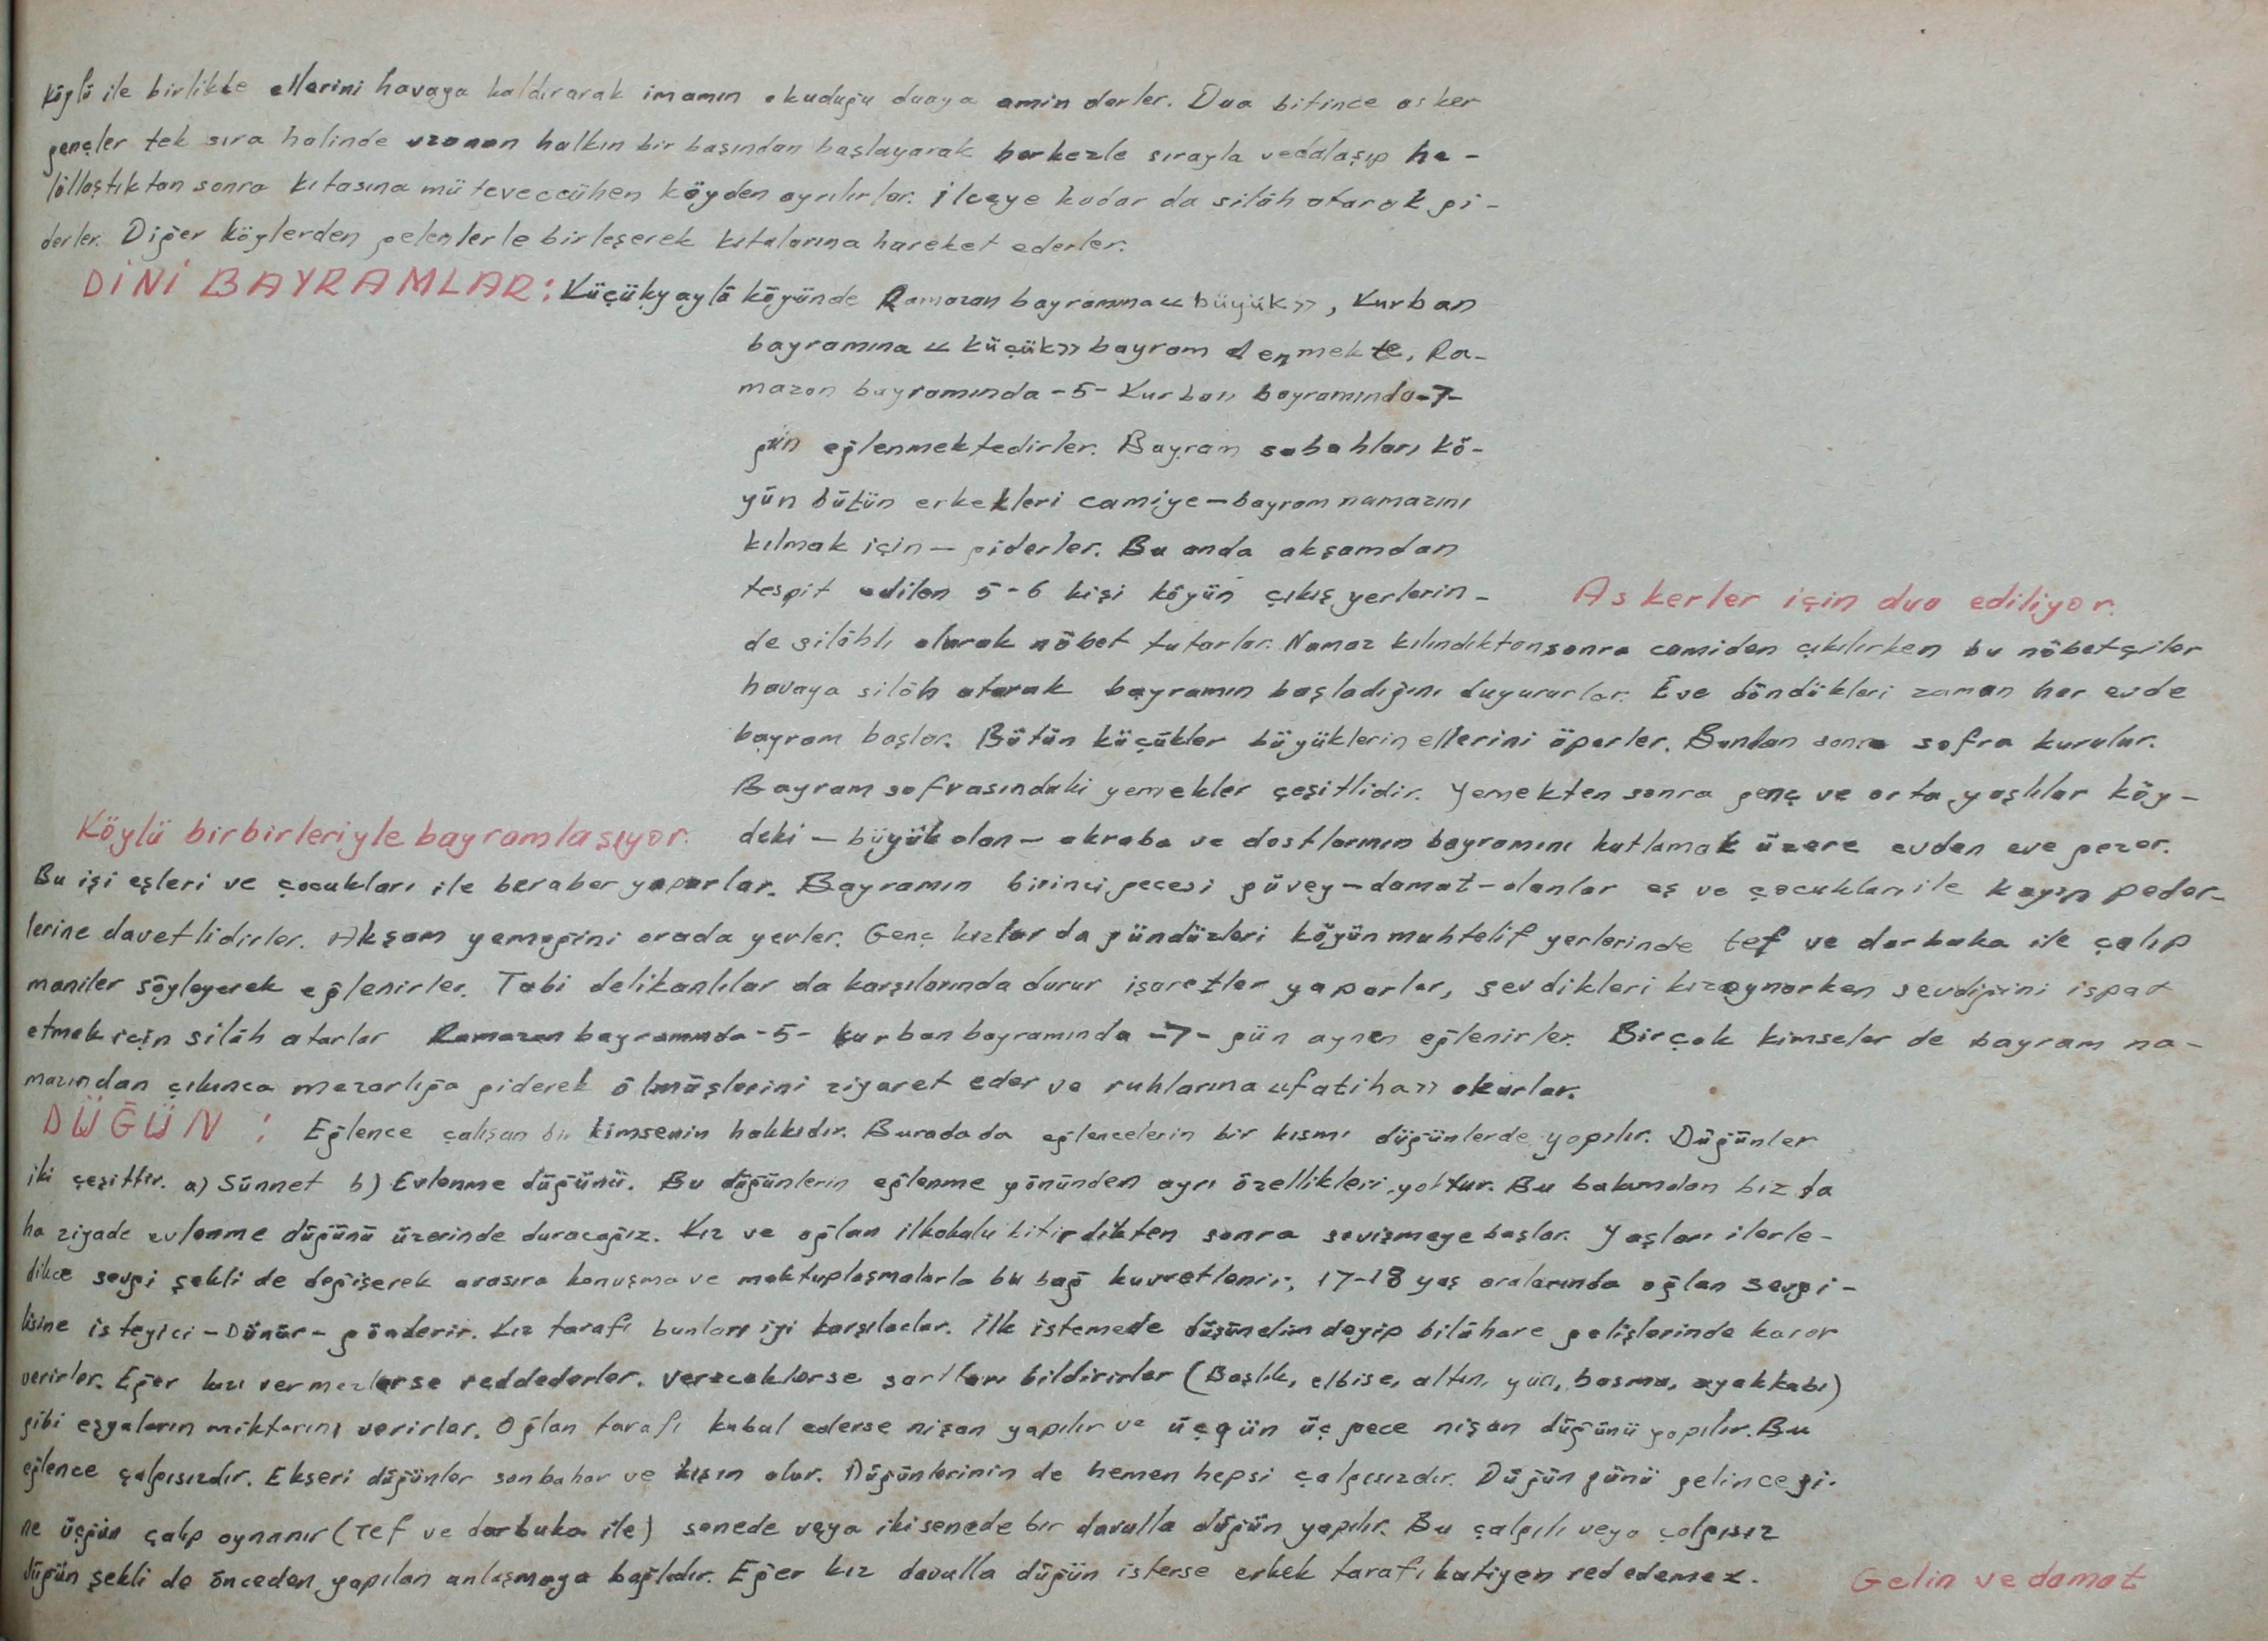 köylü ile birlikte ellerini havaya kaldırarak imamın okuduğu duaya amin derler. Dua bitince asker
gençler tek sıra halinde uzanan halkın bir başından başlayarak herkezle sırayla vedalaşıp he-
lâllaştıktan sonra kıtasına müteveccühen köyden ayrılırlar. ilçeye kadar da silâh atarak gi-
derler. Diğer köylerden gelenlerle birleşerek kıtalarına hareket ederler.
DİNİ BAYRAMLAR: Küçükyaylâ köyünde Ramazan bayramına «büyük», Kurban
bayramına «küçük» bayram denmekte, Ra-
mazan bayramında -5- Kurban bayramında -7-
gün eğlenmektedirler. Bayram sabahları kö-
yün bütün erkekleri camiye - bayram namazını
kılmak için - giderler. Bu anda akşamdan
tespit edilen 5-6 kişi köyün çıkış yerlerin-
Askerler için dua ediliyor.
de silâhlı olarak nöbet tutarlar. Namaz kılındıktan sonra camiden çıkılırken bu nöbetçiler
havaya silâh atarak bayramın başladığını duyururlar. Eve döndükleri zaman her evde
bayram başlar. Bütün küçükler büyüklerin ellerini öperler. Bundan sonra sofra kurulur.
Bayram sofrasındaki yemekler çeşitlidir. Yemekten sonra genç ve orta yaşlılar köy-
Köylü birbirleriyle bayramlaşıyor.
deki - büyük olan - akraba ve dostlarının bayramını kutlamak üzere evden eve gezer.
Bu işi eşleri ve çocukları ile beraber yaparlar. Bayramın birinci gecesi güvey - damat - olanlar eş ve çocukları ile kayın peder-
lerine davetlidirler. Akşam yemeğini orada yerler. Genç kızlar da gündüzleri köyün muhtelif yerlerinde tef ve darbuka ile çalıp
maniler söyleyerek eğlenirler. Tabi delikanlılar da karşılarında durur işaretler yaparlar, sevdikleri kız oynarken sevdiğini ispat
etmek için silâh atarlar Ramazan bayramında -5- kurban bayramında -7- gün aynen eğlenirler. Birçok kimseler de bayram na-
mazından çıkınca mezarlığa giderek ölmüşlerini ziyaret eder ve ruhlarına «fatiha» okurlar.
DÜĞÜN : Eğlence çalışan bir kimsenin hakkıdır. Burada da eğlencelerin bir kısmı düğünlerde yapılır. Düğünler
iki çeşittir. a) Sünnet b) Evlenme düğünü. Bu düğünlerin eğlenme yönünden ayrı özellikleri yoktur. Bu bakımdan biz da
ha ziyade evlenme düğünü üzerinde duracağız. Kız ve oğlan ilkokulu bitirdikten sonra sevişmeye başlar. Yaşları ilerle-
dikce sevgi şekli de değişerek arasıra konuşma ve mektuplaşmalarla bu bağ kuvvetlenir; 17-18 yaş aralarında oğlan sevgi-
lisine isteyici - Dünür - gönderir. Kız tarafı bunları iyi karşılarlar. İlk istemede düşünelim deyip bilâhare gelişlerinde karar
verirler. Eğer kızı vermezlerse reddederler. vereceklerse şartları bildirirler (Başlık, elbise, altın, yün, basma, ayakkabı)
gibi eşyaların miktarını verirler. Oğlan tarafı kabul ederse nişan yapılır ve üçgün üç gece nişan düğünü yapılır. Bu
eğlence çalgısızdır. Ekseri düğünler sonbahar ve kışın olur. Düğünlerinin de hemen hepsi çalgısızdır. Düğün günü gelince yi-
ne üçgün çalıp oynanır (Tef ve darbuka ile) senede veya iki senede bir davulla düğün yapılır. Bu çalgılı veya çalgısız
düğün şekli de önceden yapılan anlaşmaya bağlıdır. Eğer kız davulla düğün isterse erkek tarafı katiyen red edemez.
Gelin ve damat